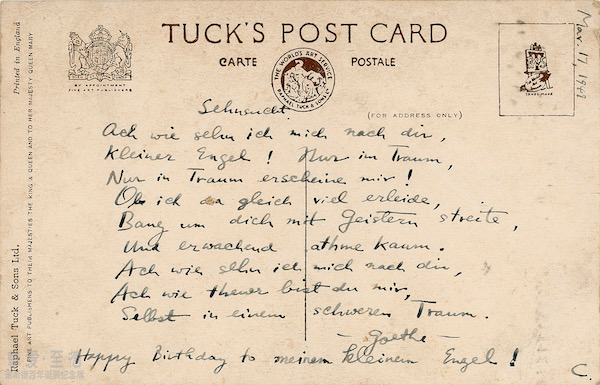 TUCK'S POST CARD
CARTE POSTALE
BY APPOINTMENT
FINE ART PUBLISHERS
THE WORLD'S ART SERVICE
RAPHAEL TUCK & SONS LTD
(FOR ADDRESS ONLY)
TRADE MARK
Mar. 17, 1943
Printed in England
FINE ART PUBLISHERS TO THEIR MAJESTIES THE KING & QUEEN AND TO HER MAJESTY QUEEN MARY
Raphael Tuck & Sons Ltd.
Sehnsucht.
Ach wie sehn ich mich nach dir,
Kleiner Engel! Nur im Traum,
Nur in Traum erscheine mir!
Ob ich da gleich viel erleide,
Bang um dich mit Geistern streite,
Und erwachend athme kaum.
Ach wie sehn ich mich nach dir,
Ach wie theuer bist du mir,
Selbst in einem schweren Traum.
- Goethe -
Happy Birthday to meinem kleinem Engel!
C.